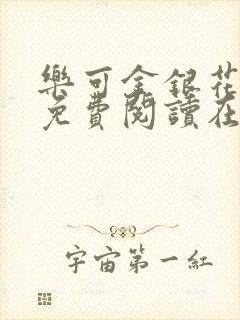 樂可金銀花
免費閱讀在
宇宙第一紅